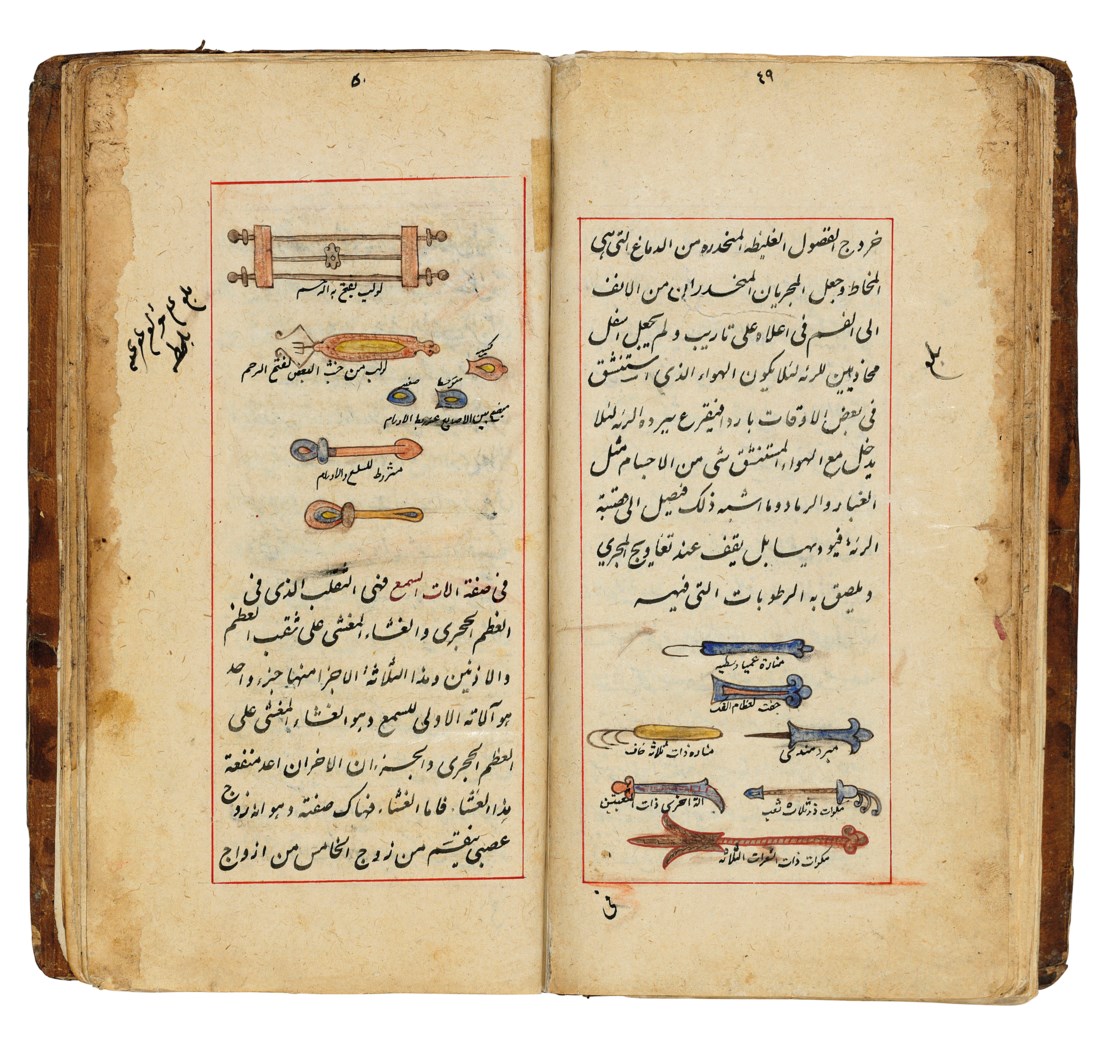 ٤٩
خروج الفضول الغليظه المنحدره من الدماغ التى هى
المخاط وجعل المجريان المنحدران من الانف
الى الفم فى اعلاه على تاريب ولم يجعل اسفل
محاذيين للرئه لئلا يكون الهواء الذى استنشق
فى بعض الاوقات بارد افيقرع ببرده الرئه لئلا
يدخل مع الهواء المستنشق شى من الاجسام مثل
الغبار والرماد وما اشبه ذلك فيصل الى قصبة
الرئة فيوذيها بل يقف عند تعاويج المجرى
ويلصق به الرطوبات التى فيه
بلغ
صنارة عمياء بسطيه
جفت لعظام القلب
صناره ذات ثلاثة
مبرد هندى
الة اخرى ذات الشعبتين
مكوات ذو ثلاث شعب
مكوات ذات الشعرات الثلاثة
فى
٥٠
لولب يفتح به الرحم
لولب من خشب لفتح الرحم
كبير
متوسط
صغير
مبضع بين الاصبع الاورام
مشرط للسلع والاورام
بلغ
فى صفة الات السمع فهى الثقب الذى فى
العظم الحجرى والغشاء المغشى على ثقب العظم
والاذنين وهذا الثلاثة الاجزا منها جزء واحد
هو آلاته الاولى للسمع وهو الغشاء المغشى على
العظم الحجرى والجزءان الاخران اعد منفعة
هذا الغشاء فاما الغشاء فهاك صفته وهو انه زوج
عصبى ينقسم من زوج الخامس من ازواج